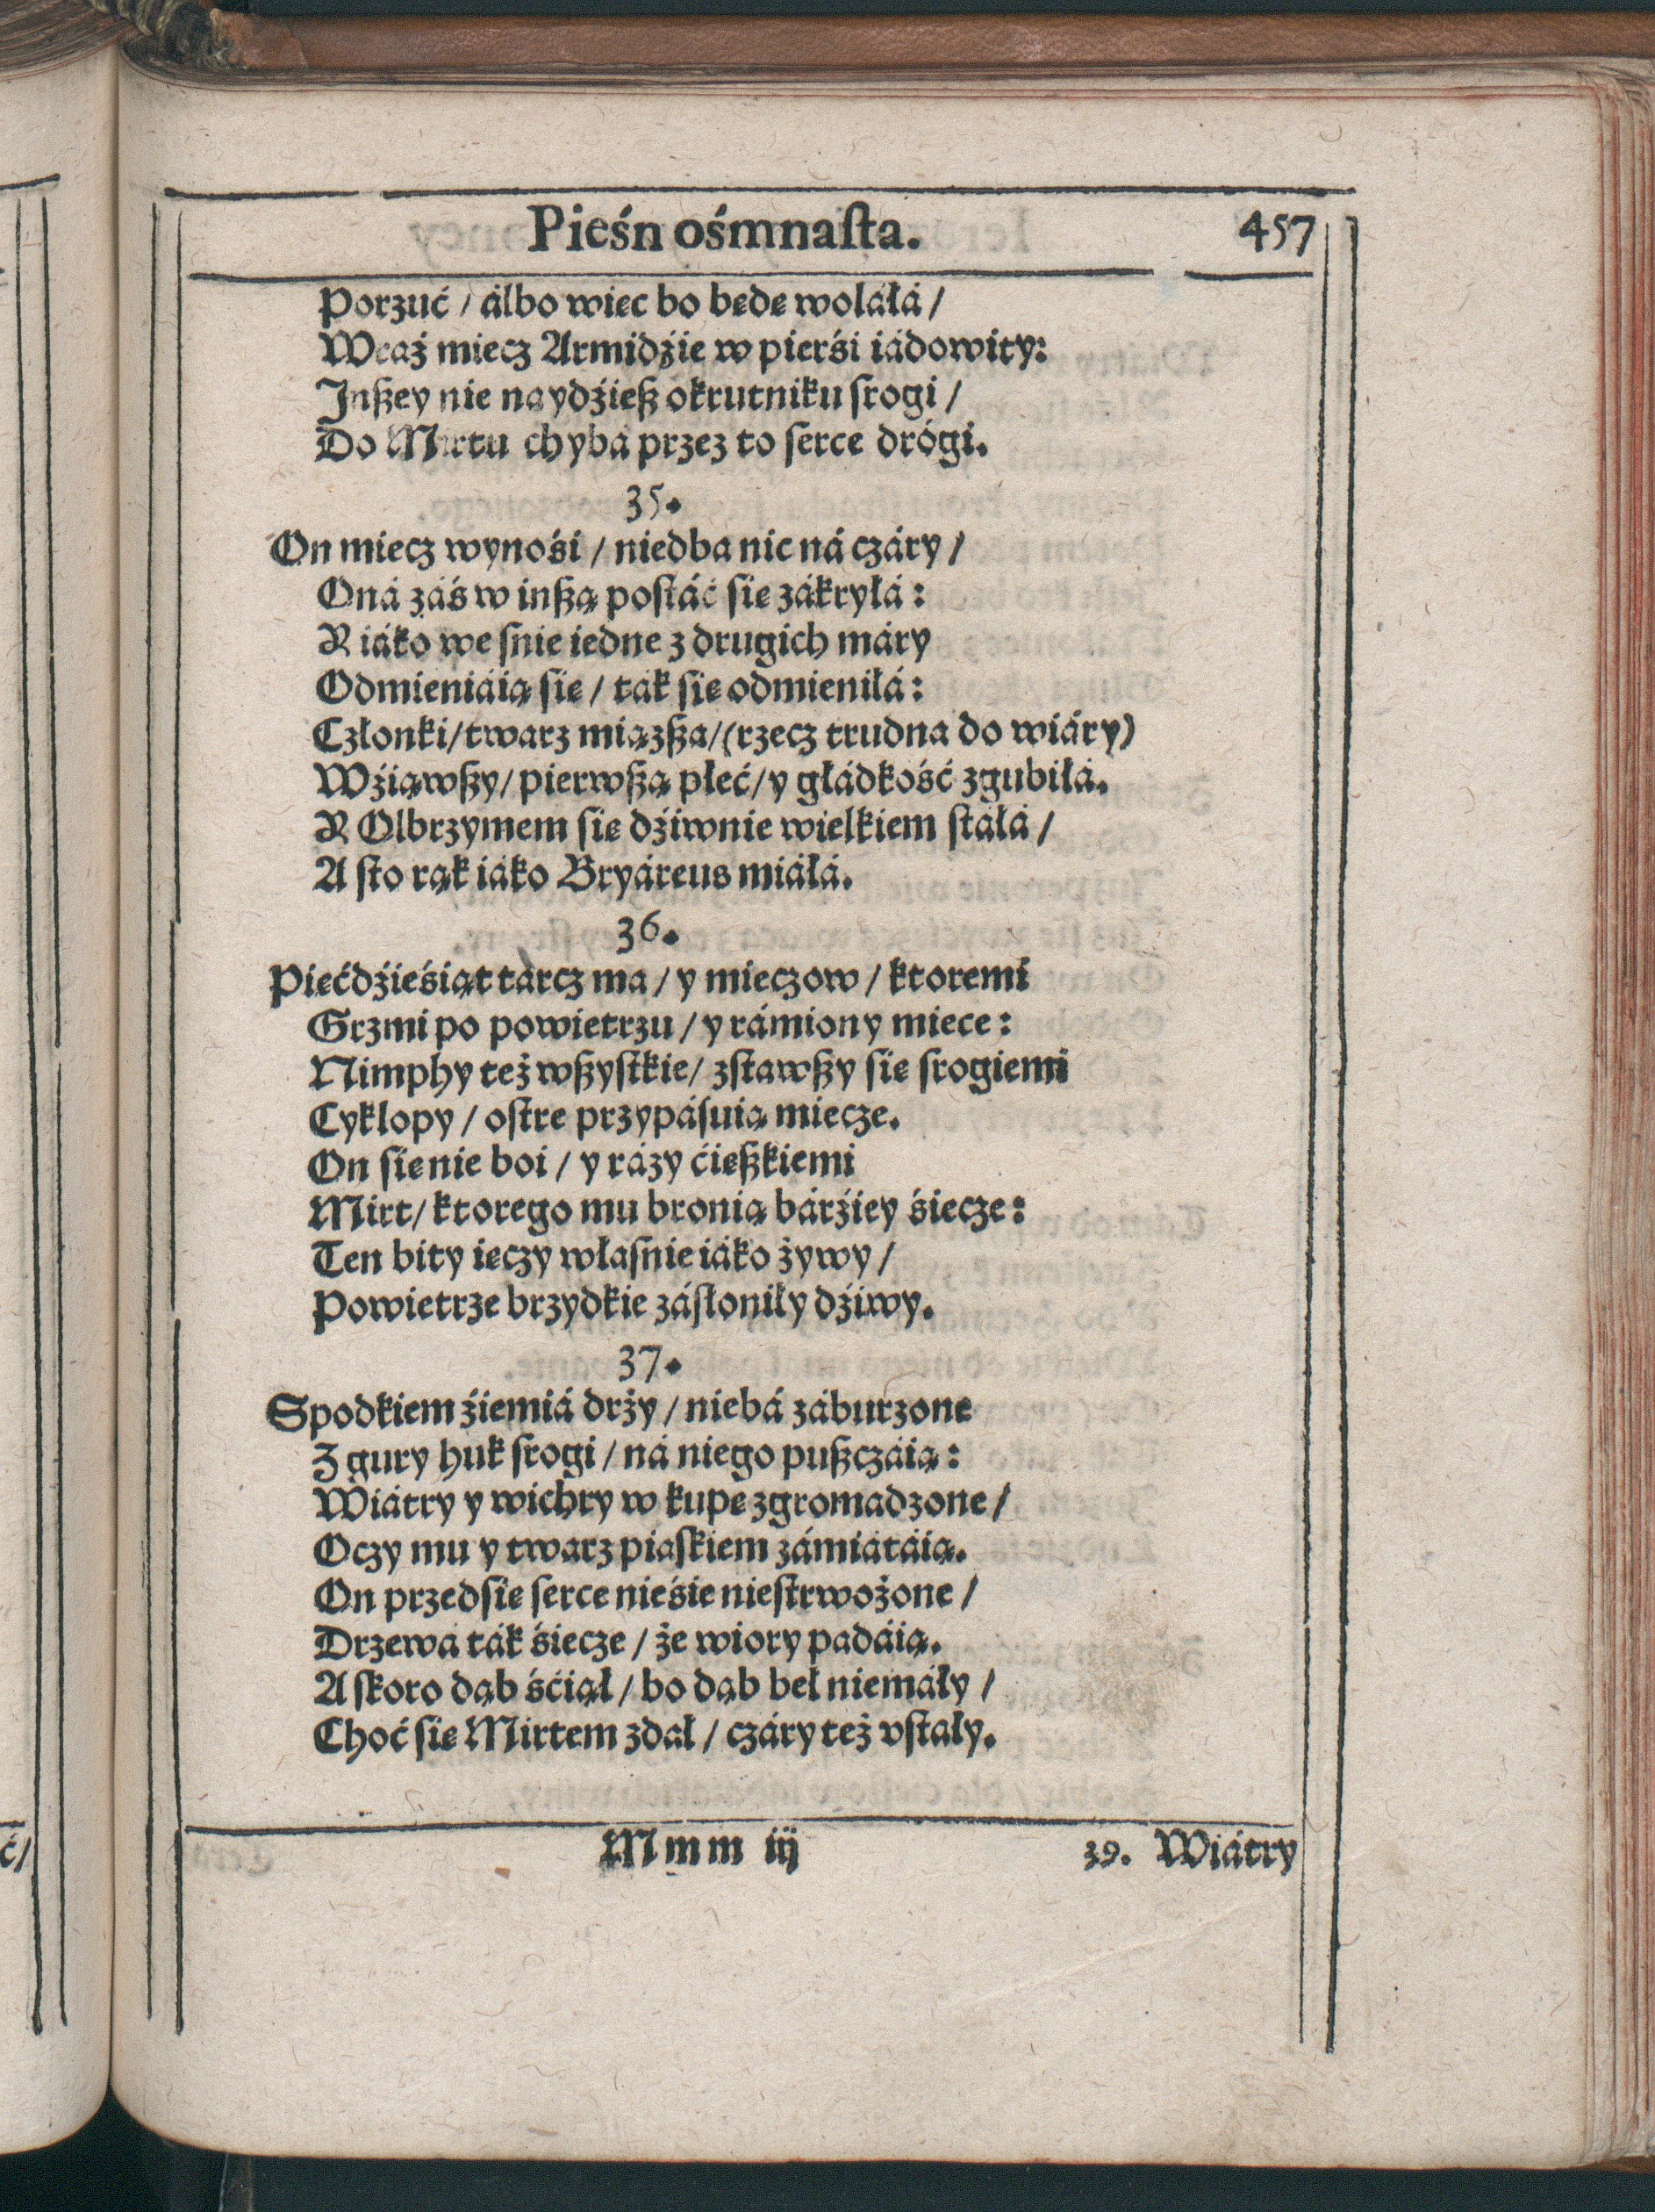 Pieśn ośmnaſta. 457
Porzuć / álbo wiec bo bede wolałá /
Wraź miecz Armidźie w pierśi iádowity:
Inßey nie naydźieß okrutniku ſrogi /
Do Mirtu chybá przez to ſerce drógi.
35.
On miecz wynośi / niedba nic ná czáry /
Oná záś w inßą poſtáć ſie zákryłá:
R iáko we ſnie iedne z drugich máry
Odmieniáią ſie / ták ſie odmieniłá:
Członki / twarz miązßa / (rzecz trudna do wiáry)
Wźiąwßy / pierwßą płeć / y głádkość zgubiłá.
R Olbrzymem ſie dźiwnie wielkiem ſtáłá /
A ſto rąk iáko Bryáreus miáłá.
36.
Piećdźieśiąt tárcz ma / y mieczow / ktoremi
Grzmi po powietrzu / y rámiony miece:
Nimphy też wßyſtkie / zſtawßy ſie ſrogiemi
Cyklopy / oſtre przypáſuią miecze.
On ſie nie boi / y rázy ćießkiemi
Mirt / ktorego mu bronią bárźiey śiecze:
Ten bity ieczy właſnie iáko żywy /
Powietrze brzydkie záſłoniły dźiwy.
37.
Spodkiem źiemiá drży / niebá záburzone
Z gury huk ſrogi / ná niego pußczáią:
Wiátry y wichry w kupe zgromadzone /
Oczy mu y twarz piaſkiem zámiátáią.
On przedſie ſerce nieśie nieſtrwożone /
Drzewá ták śiecze / że wiory padáią.
A ſkoro dąb śćiął / bo dąb beł niemáły /
Choć ſie Mirtem zdał / czáry też vſtały.
Mmm iij 39. Wiátry
ć /